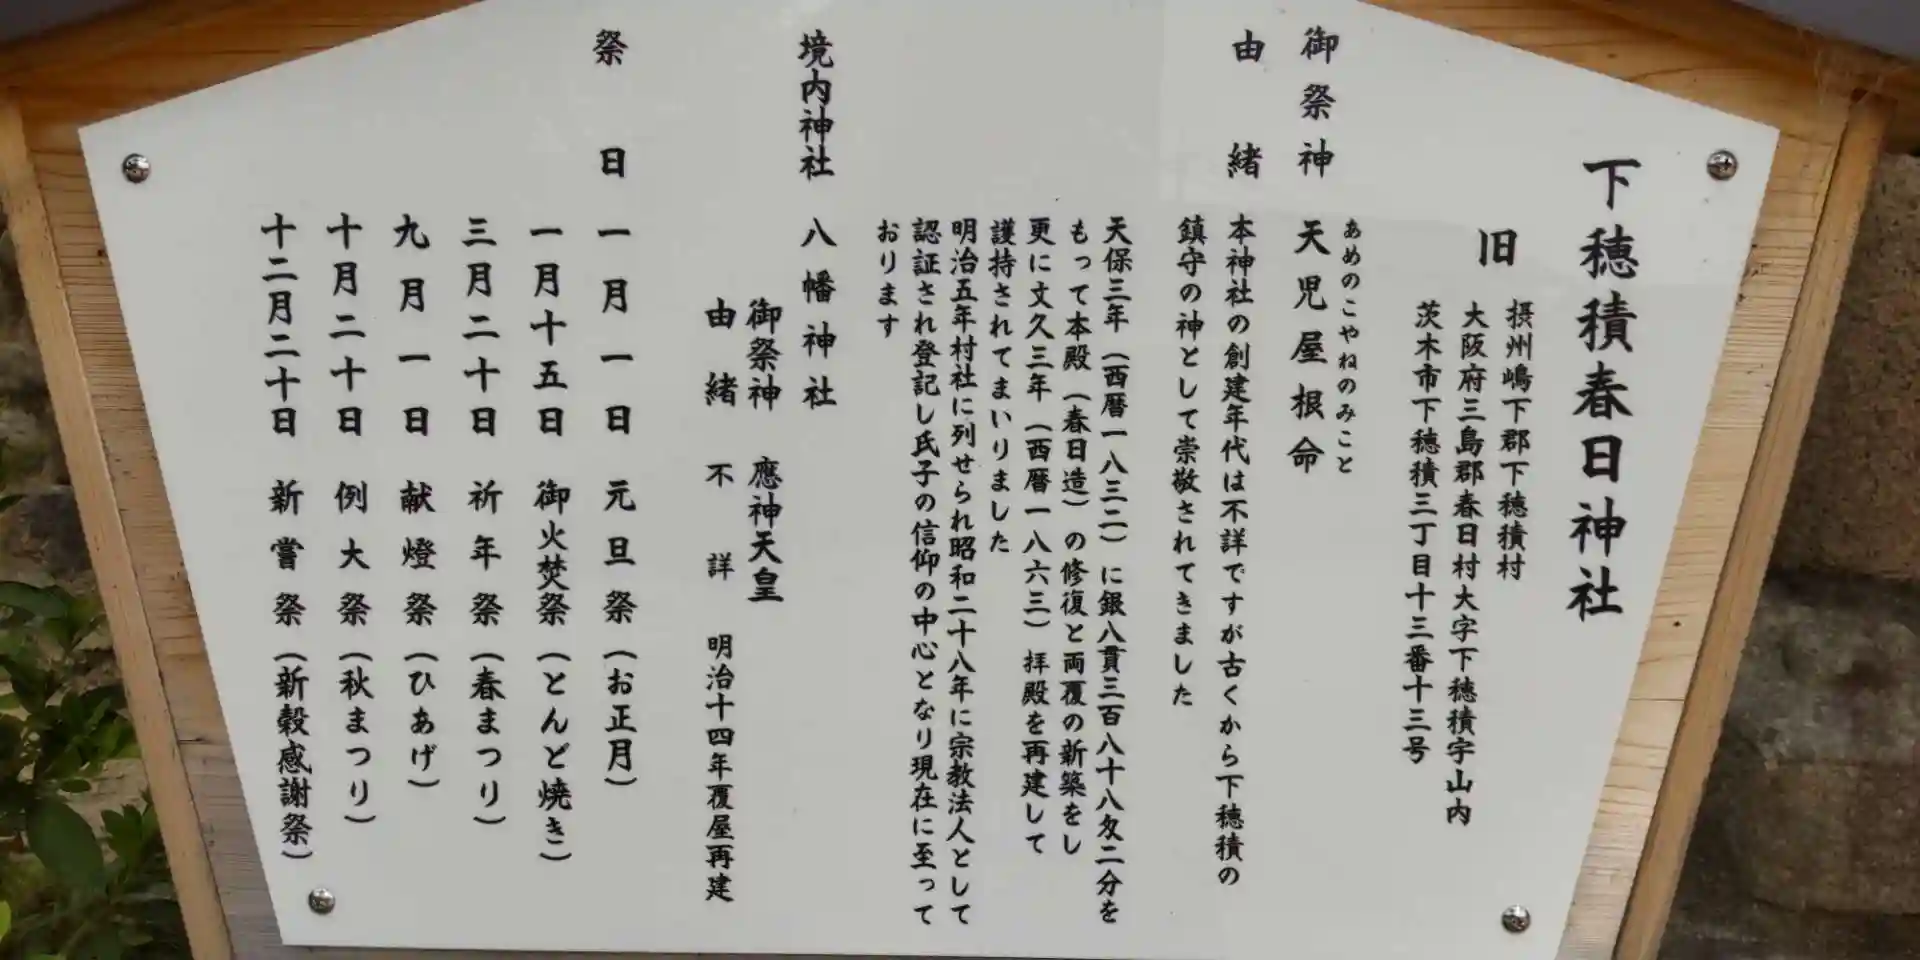 下穂積春日神社
旧
摂州嶋下郡下穂積村
大阪府三島郡春日村大字下穂積字山内
茨木市下穂積三丁目十三番十三号
あめのこやねのみこと
御祭神 天児屋根命
由緒 本神社の創建年代は不詳ですが古くから下穂積の
鎮守の神として崇敬されてきました
天保三年（西暦一八三二）に銀八貫三百八十八匁二分を
もって本殿（春日造）の修復と両覆の新築をし
更に文久三年（西暦一八六三）拝殿を再建して
護持されてまいりました
明治五年村社に列せられ昭和二十八年に宗教法人として
認証され登記し氏子の信仰の中心となり現在に至って
おります
境内神社 八幡神社
御祭神 應神天皇
由緒 不詳 明治十四年覆屋再建
祭日 一月一日 元旦祭（お正月）
一月十五日 御火焚祭（とんど焼き）
三月二十日 祈年祭（春まつり）
九月一日 献燈祭（ひあげ）
十月二十日 例大祭（秋まつり）
十二月二十日 新嘗祭（新穀感謝祭）